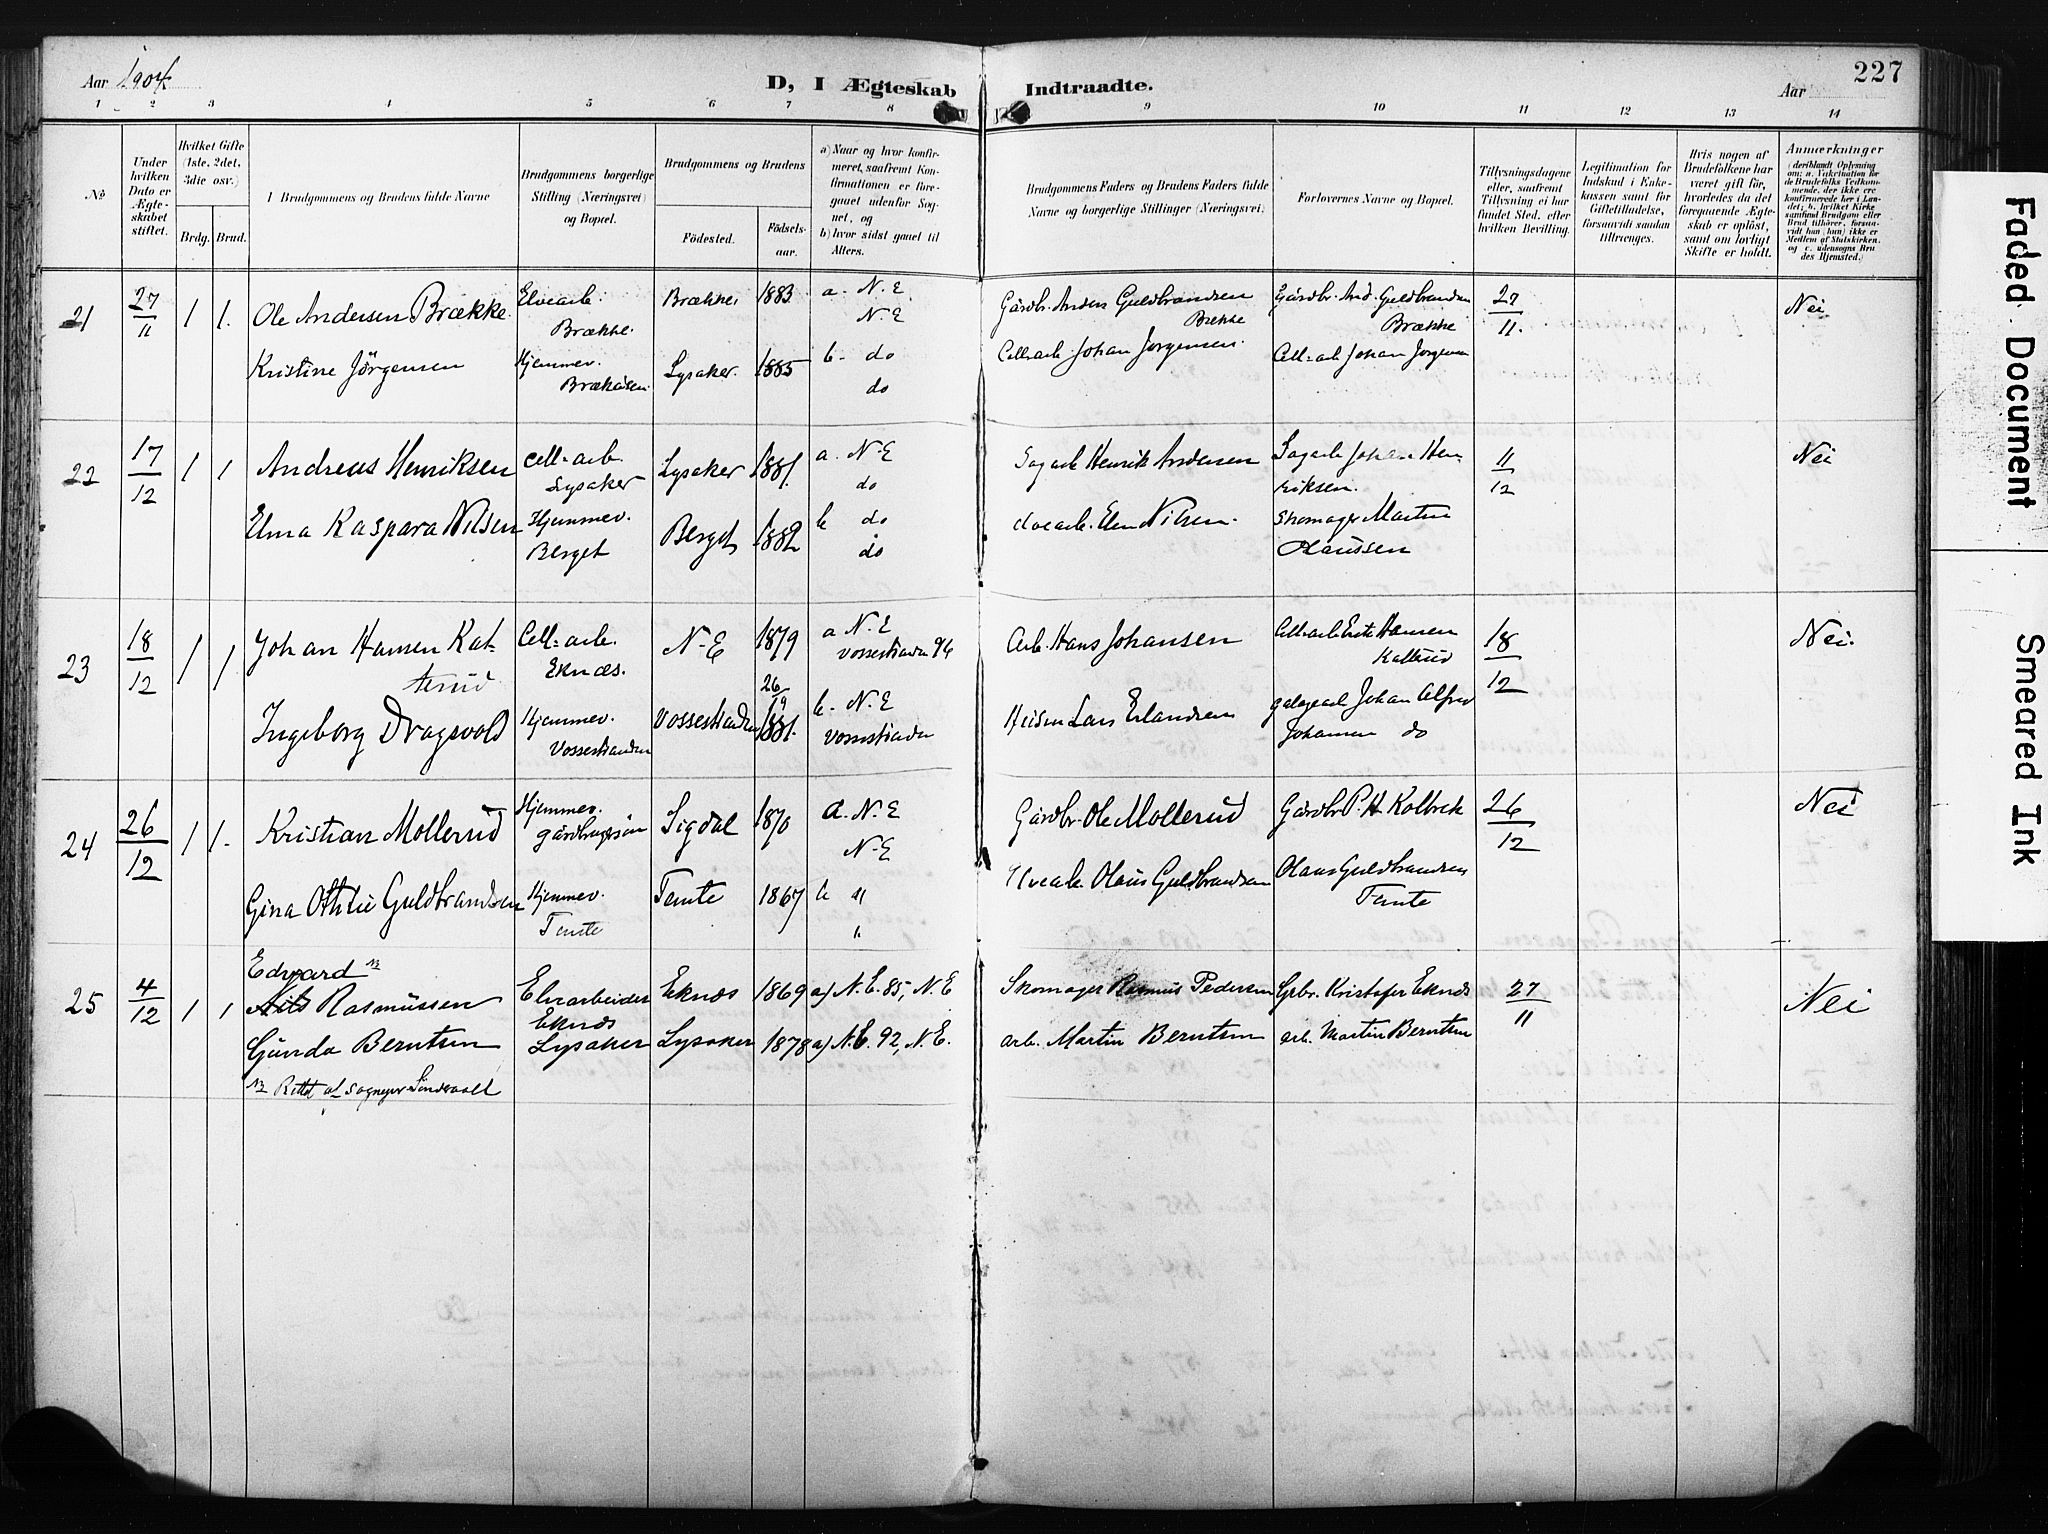 Aar 1904
D, I Ægteskab Indtraadte.
Aar
227
1 2 3 4 5 6 7 8 9 10 11 12 13 14
No
Under hvilken Dato er Ægteskabet stiftet.
Hvilket Gifte (1ste, 2det, 3die osv.)
Brdg. Brud.
I Brudgommens og Brudens fulde Navne
Brudgommens borgerlige Stilling (Næringsvei) og Bopæl.
Brudgommens og Brudens
Fødested.
Fødselsaar.
a) Naar og hvor konfirmeret, saafremt Konfirmationen er foregaaet udenfor Sognet, og
b) hvor sidst gaaet til Alters.
Brudgommens Faders og Brudens Faders fulde Navne og borgerlige Stillinger (Næringsvei)
Forlovernes Navne og Bopæl.
Tillysningsdagene eller, saafremt Tillysning ei har fundet Sted, efter hvilken Bevilling.
Legitimation for Indskud i Enkekassen samt for Giftetilladelse, forsaavidt saadan tiltrænges.
Hvis nogen af Brudefolkene har været gift før, hvorledes da det foregaaende Ægteskab er opløst, samt om lovligt Skifte er holdt.
Anmærkninger
(deriblandt Oplysning om: a. Vakcination for de Brudefolks Vedkommende, der ikke ere konfirmerede her i Landet; b. hvilket Kirkesamfund Brudgom eller Brud tilhører, forsaavidt han (hun) ikke er Medlem af Statskirken, og c. udensogns Brudes Hjemsted.)
21 27/11 1 1. Ole Andersen Brække. Elvearb. Brække. Brække. 1883 a. N. E N. E Gårdbr. Anders Guldbrandsen Brække Gårdbr. And. Guldbrandsen Brække 27/11. Nei
Kristine Jörgensen Hjemmev. Lysaker. 1885 b. do do Cell.arb Johan Jørgensen. Cell.arb Johan Jørgensen
22 17/12 1 1 Andreas Henriksen Cell.arb. Lysaker Lysaker 1881. a. N.E do Sagarb Henrik Andersen Sagarb Johan Henriksen. 11/12 Nei
Elma Kaspara Nilsen Hjemmev. Berget Berget 1882 b do do Nilsen. Skomager Martin Olaussen
23 18/12 1 1 Johan Hansen Katterud Cell.arb. Eknæs. N-E 1879 a N.E Vossestranden 96 Arb. Hans Johansen Cell.arb Hansen Katterud 18/12 Nei.
Ingeborg Dragsvold Hjemmev. Vossestranden Vossestranden 26/9 1881. b. N. E Vossestranden Lars Erlandsen Johan Alfred Johansen do
24 26/12 1 1. Kristian Mollerud Hjemmev. gårdbrugersøn Sigdal 1870 a. N. E N-E Gårdbr. Ole Mollerud Gårdbr. P. H Kolbrek 26/12 Nei
Gina Othilie Guldbrandsen Hjemmev. Temte Temte 1867 b " " Elvearb. Olaus Guldbrandsen Olaus Guldbrandsen Temte
Edvard
25 4/12 1 1 Nils Rasmussen Elvearbeider Eknæs Eknæs 1869 a) N. E. 85, N. E Skomager Rasmus Pedersen Grbr. Kristofer Eknæs 27/11 Nei
Gunda Berntsen Lysaker Lysaker 1878 a) N. E. 92, N. E. arb. Martin Berntsen arb. Martin Berntsen
Rettet af sogneprest
Faded Document
Smeared Ink